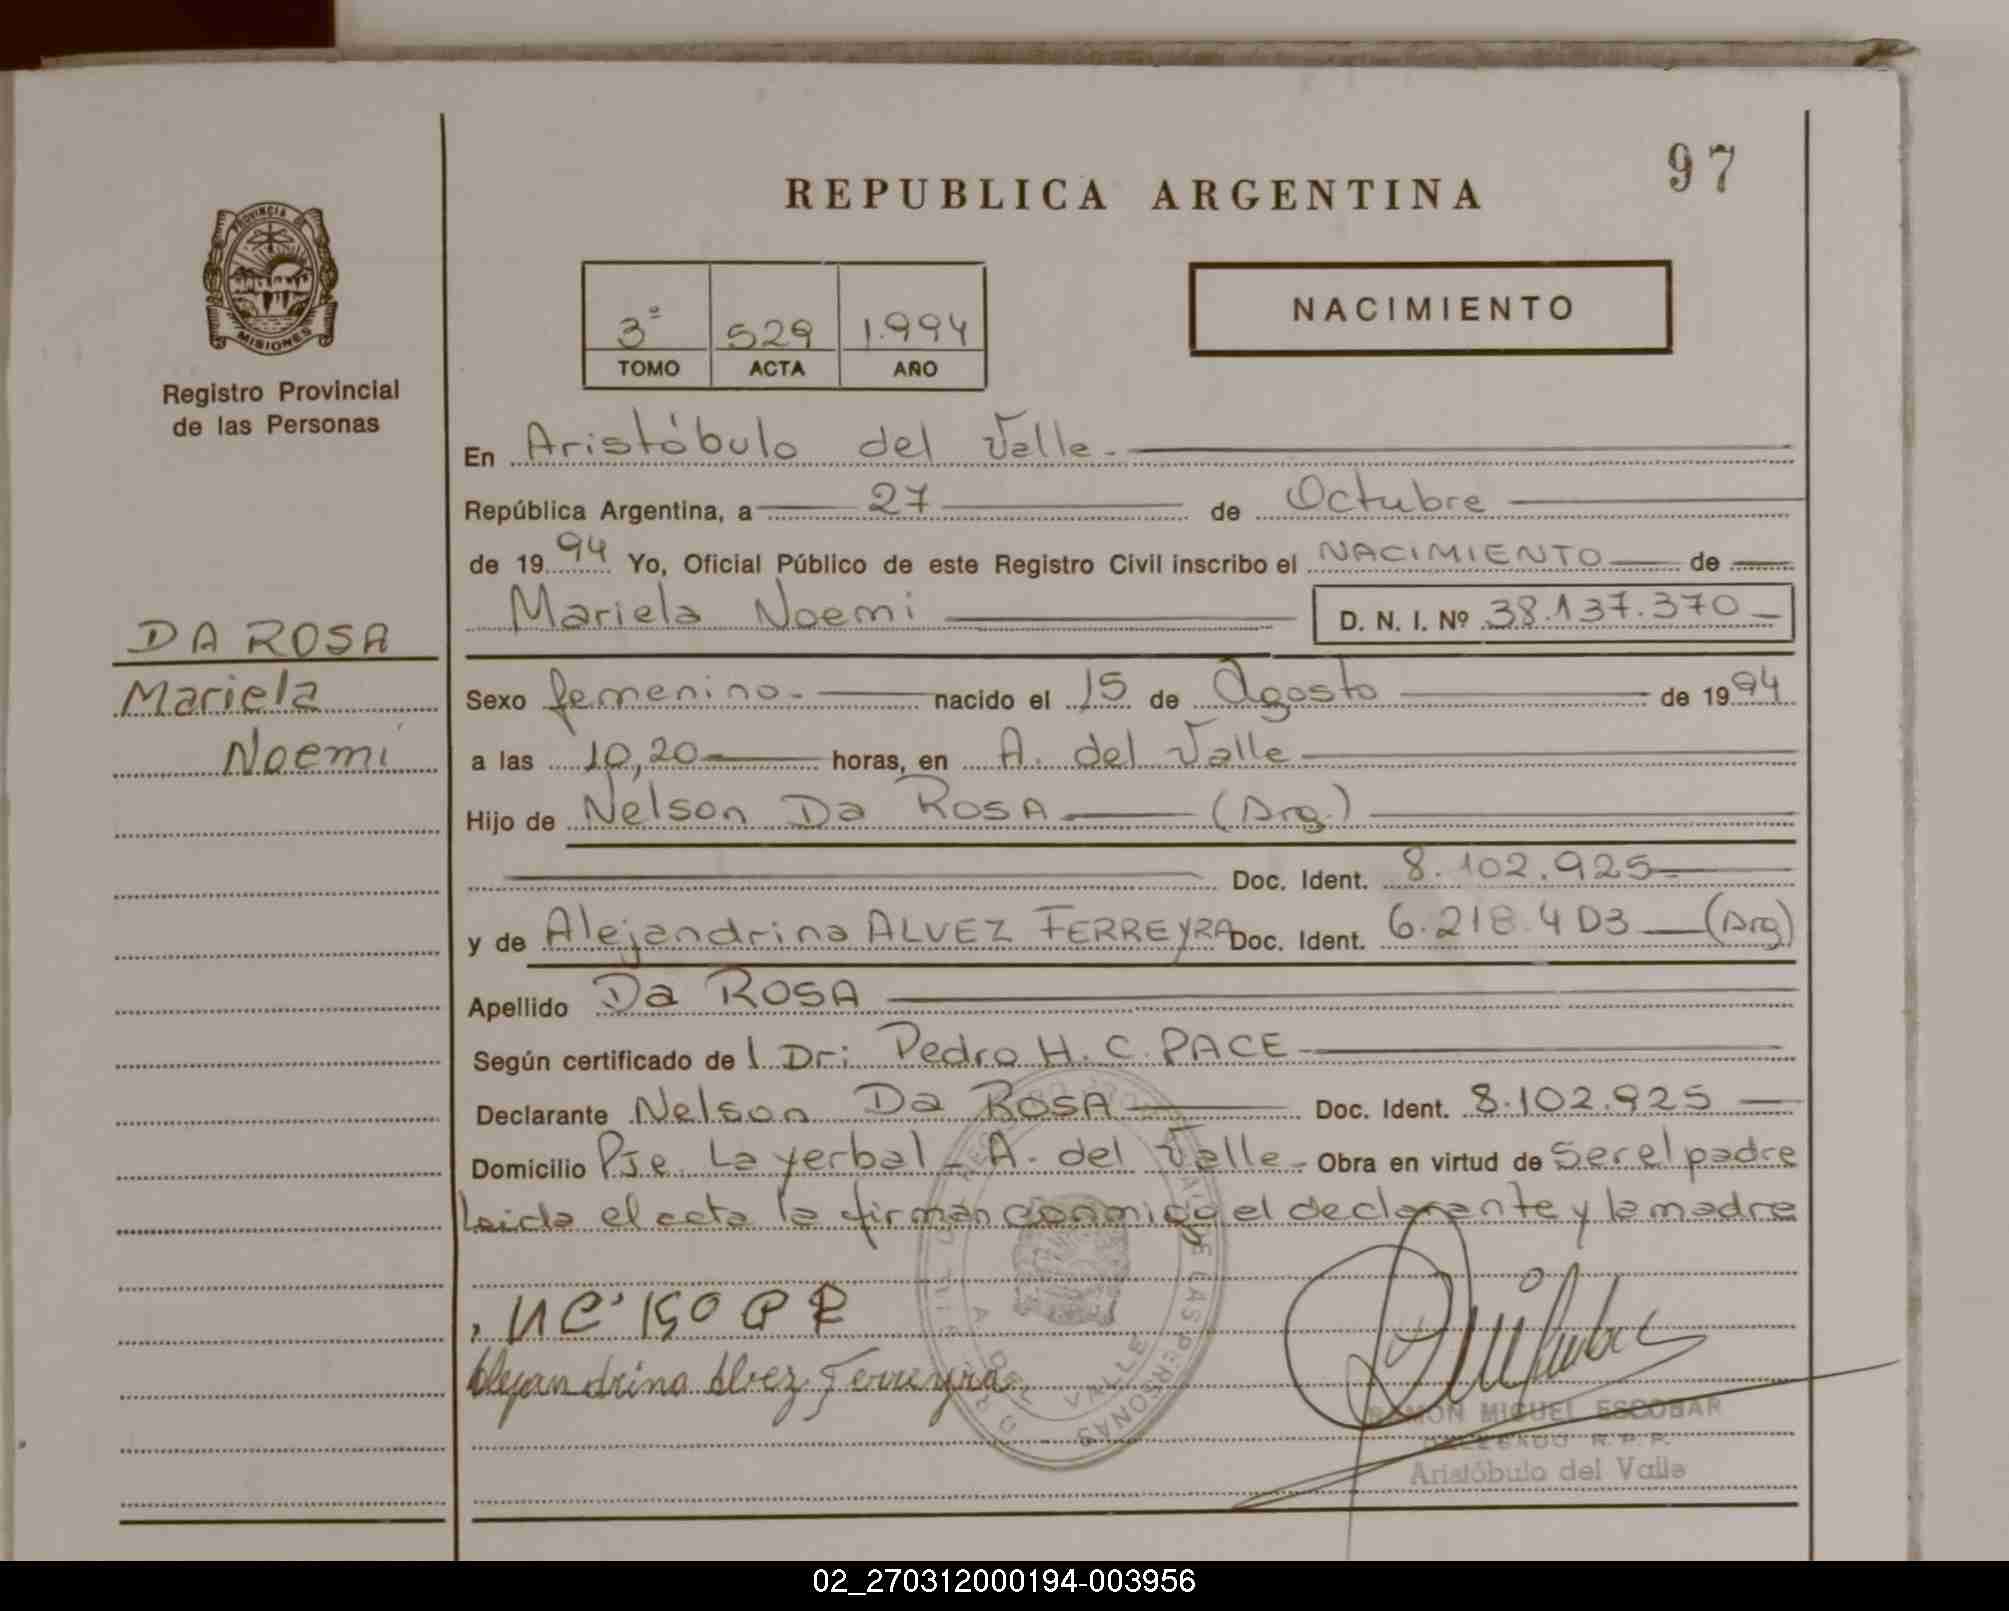 97
REPUBLICA ARGENTINA
PROVINCIA DE
MISIONES
Registro Provincial
de las Personas
3º 529 1.994
TOMO ACTA AÑO
NACIMIENTO
En Aristóbulo del Valle.
República Argentina, a 27 de Octubre
de 1994 Yo, Oficial Público de este Registro Civil inscribo el NACIMIENTO de
Mariela Noemi D. N. I. Nº 38.137.370
DA ROSA
Mariela
Noemi
Sexo femenino. nacido el 15 de Agosto de 1994
a las 10,20 horas, en A. del Valle
Hijo de Nelson Da ROSA (Arg.)
Doc. Ident. 8.102.925
y de Alejandrina ALVEZ FERREYRA Doc. Ident. 6.218.403 (Arg)
Apellido Da ROSA
Según certificado de l Dr: Pedro H. C. PACE
Declarante Nelson Da ROSA Doc. Ident. 8.102.925
Domicilio Pje. La yerbal - A. del Valle - Obra en virtud de Ser el padre
Leida el acta la firman conmigo el declarante y la madre
Alejandrina Alvez Ferreyra
RAMON MIGUEL ESCOBAR
DELEGADO R. P. P.
Aristóbulo del Valle
02_270312000194-003956